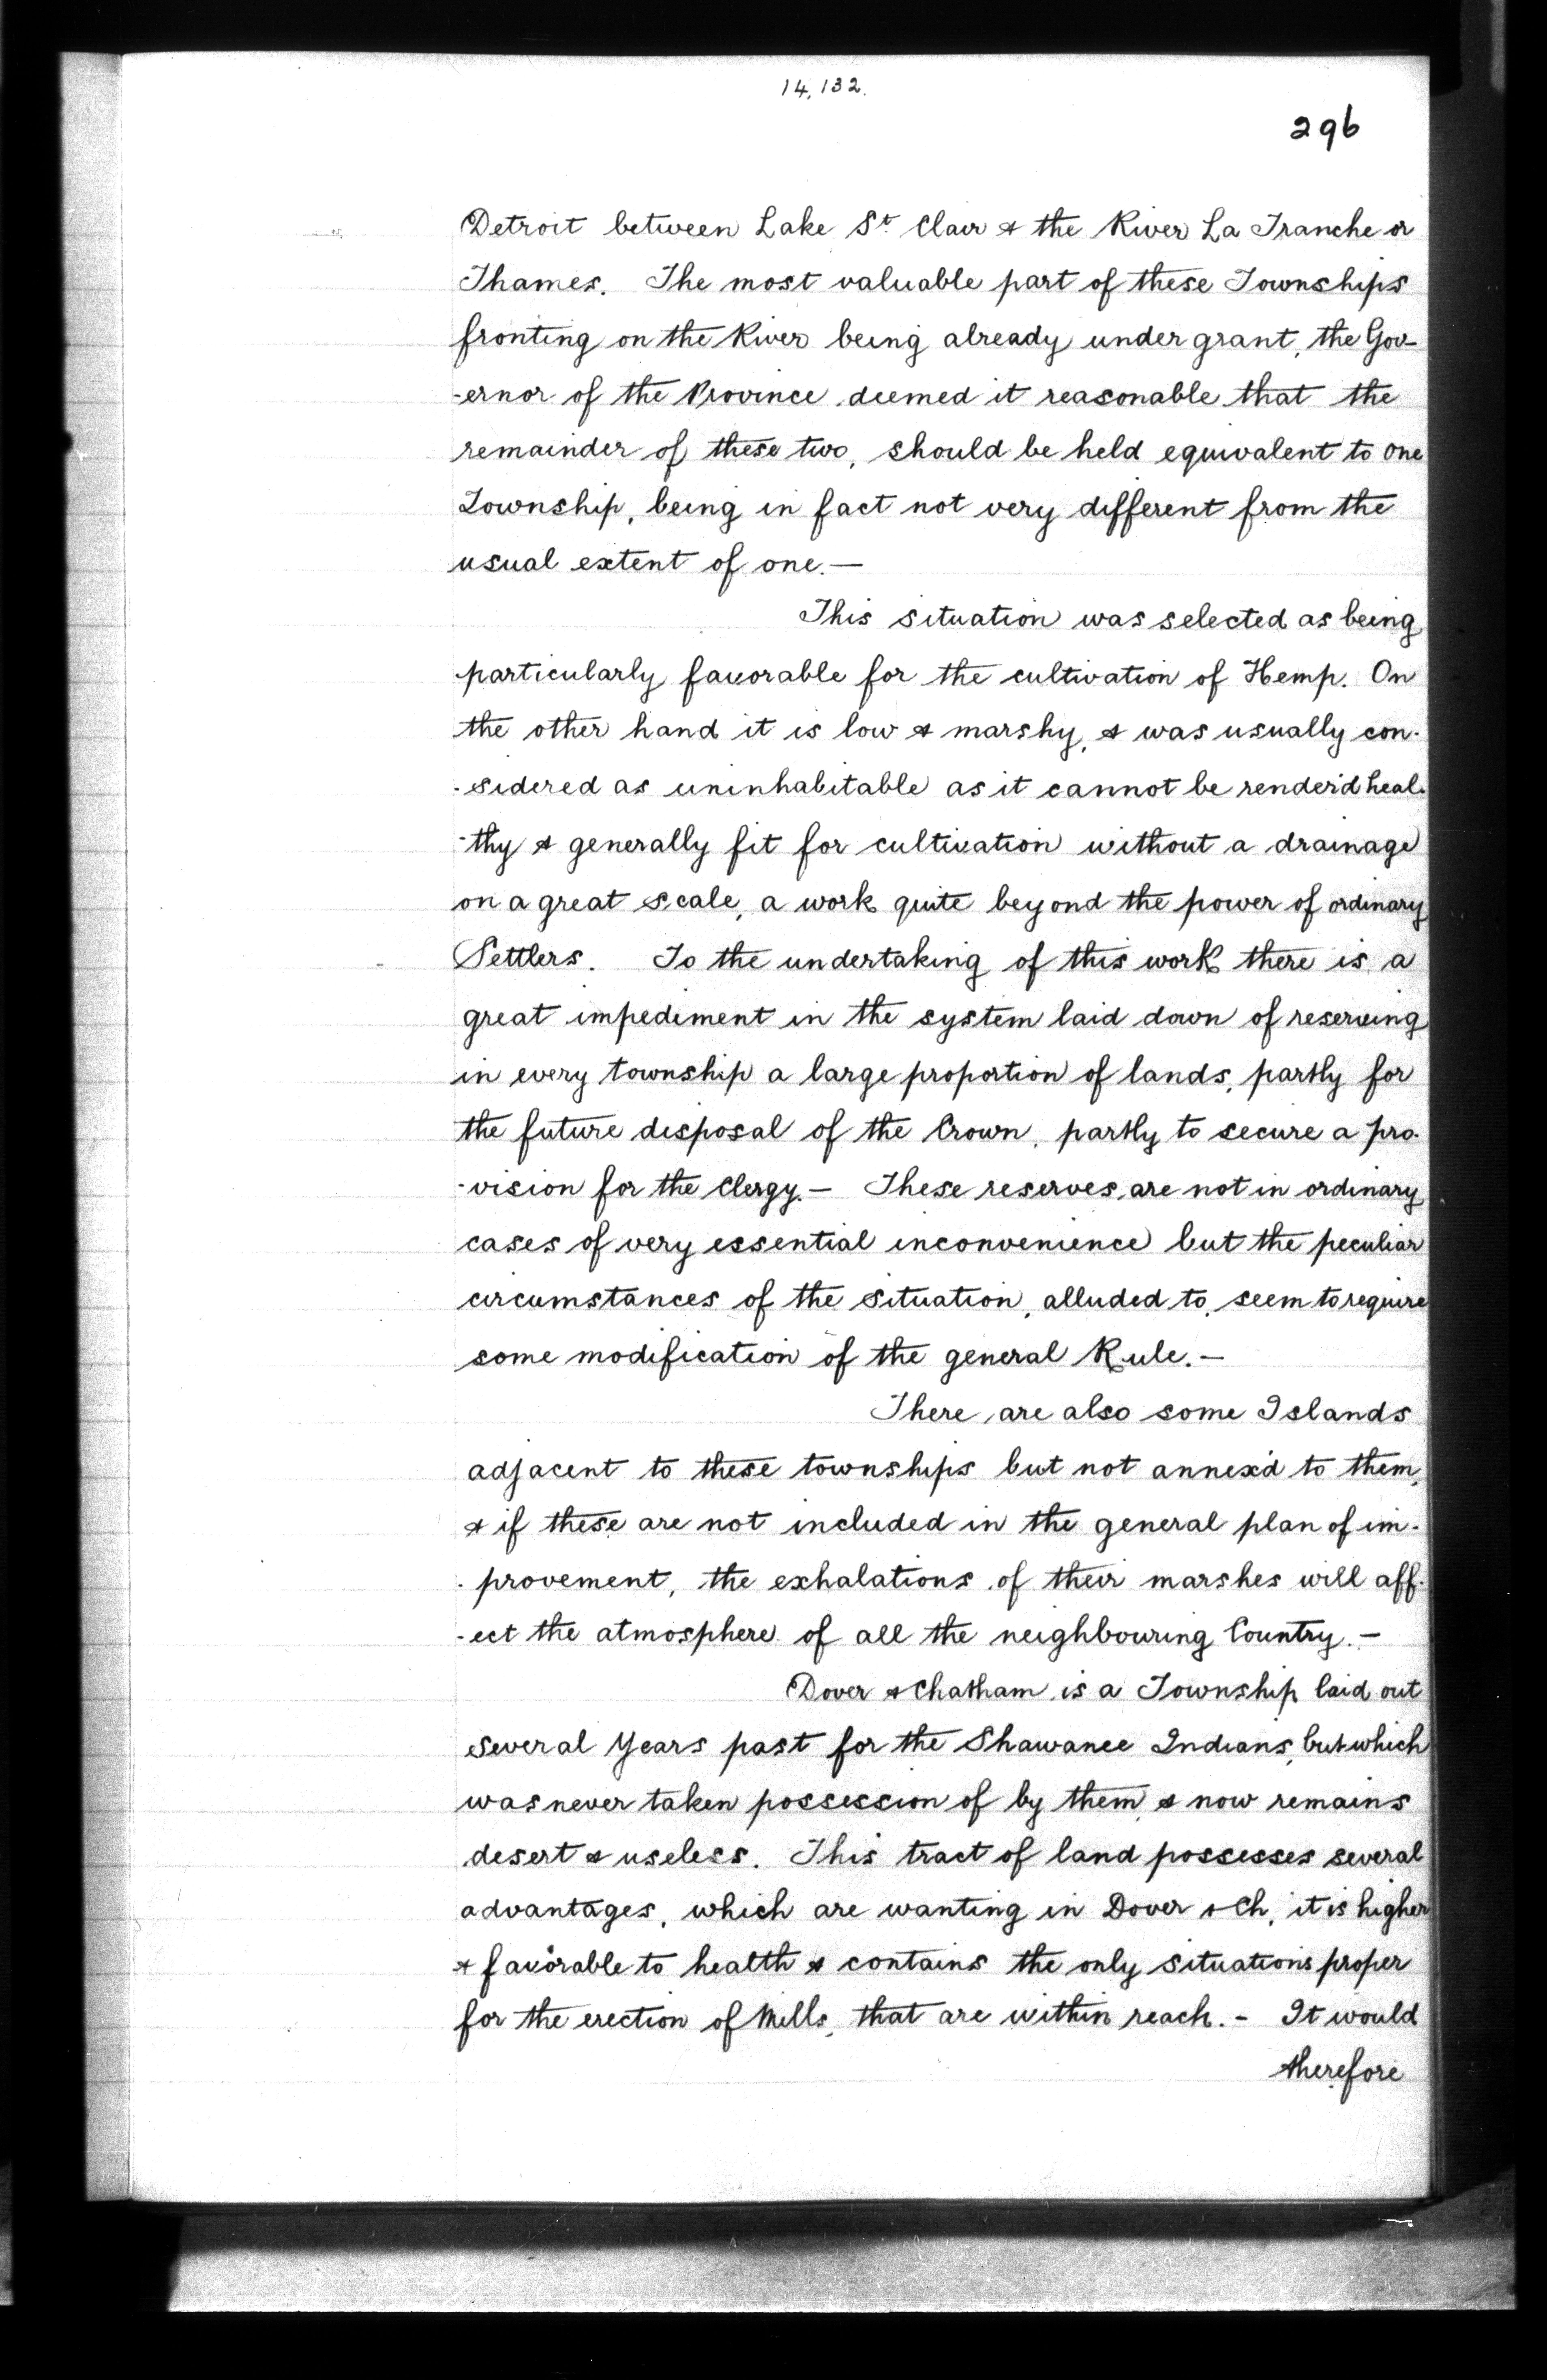 14,132.
296
Detroit between Lake St. Clair & the River La Tranche or
Thames. The most valuable part of these Townships
fronting on the River being already under grant, the Gov-
-ernor of the Province deemed it reasonable that the
remainder of these two, should be held equivalent to one
Township, being in fact not very different from the
usual extent of one.—
This situation was selected as being
particularly favorable for the cultivation of Hemp. On
the other hand it is low & marshy, & was usually con-
-sidered as uninhabitable as it cannot be render'd heal-
-thy & generally fit for cultivation without a drainage
on a great scale, a work quite beyond the power of ordinary
Settlers. To the undertaking of this work there is a
great impediment in the system laid down of reserving
in every township a large proportion of lands, partly for
the future disposal of the Crown, partly to secure a pro-
-vision for the Clergy.— These reserves are not in ordinary
cases of very essential inconvenience but the peculiar
circumstances of the situation, alluded to, seem to require
some modification of the general Rule.—
There are also some Islands
adjacent to these townships but not annex'd to them,
& if these are not included in the general plan of im-
-provement, the exhalations of their marshes will aff-
-ect the atmosphere of all the neighbouring Country.—
Dover & Chatham is a Township laid out
several Years past for the Shawanee Indians, but which
was never taken possession of by them, & now remains
desert & useless. This tract of land possesses several
advantages, which are wanting in Dover & Ch, it is higher
& favorable to health & contains the only situations proper
for the erection of Mills, that are within reach.- It would
therefore